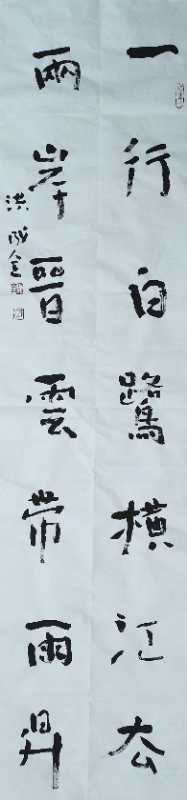 一行白鷺橫江去
兩岸晉雲帶雨昇
洪